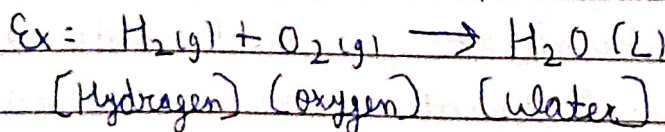 Ex = H₂(g) + O₂(g) → H₂O (L)
[Hydrogen] (oxygen) [water]